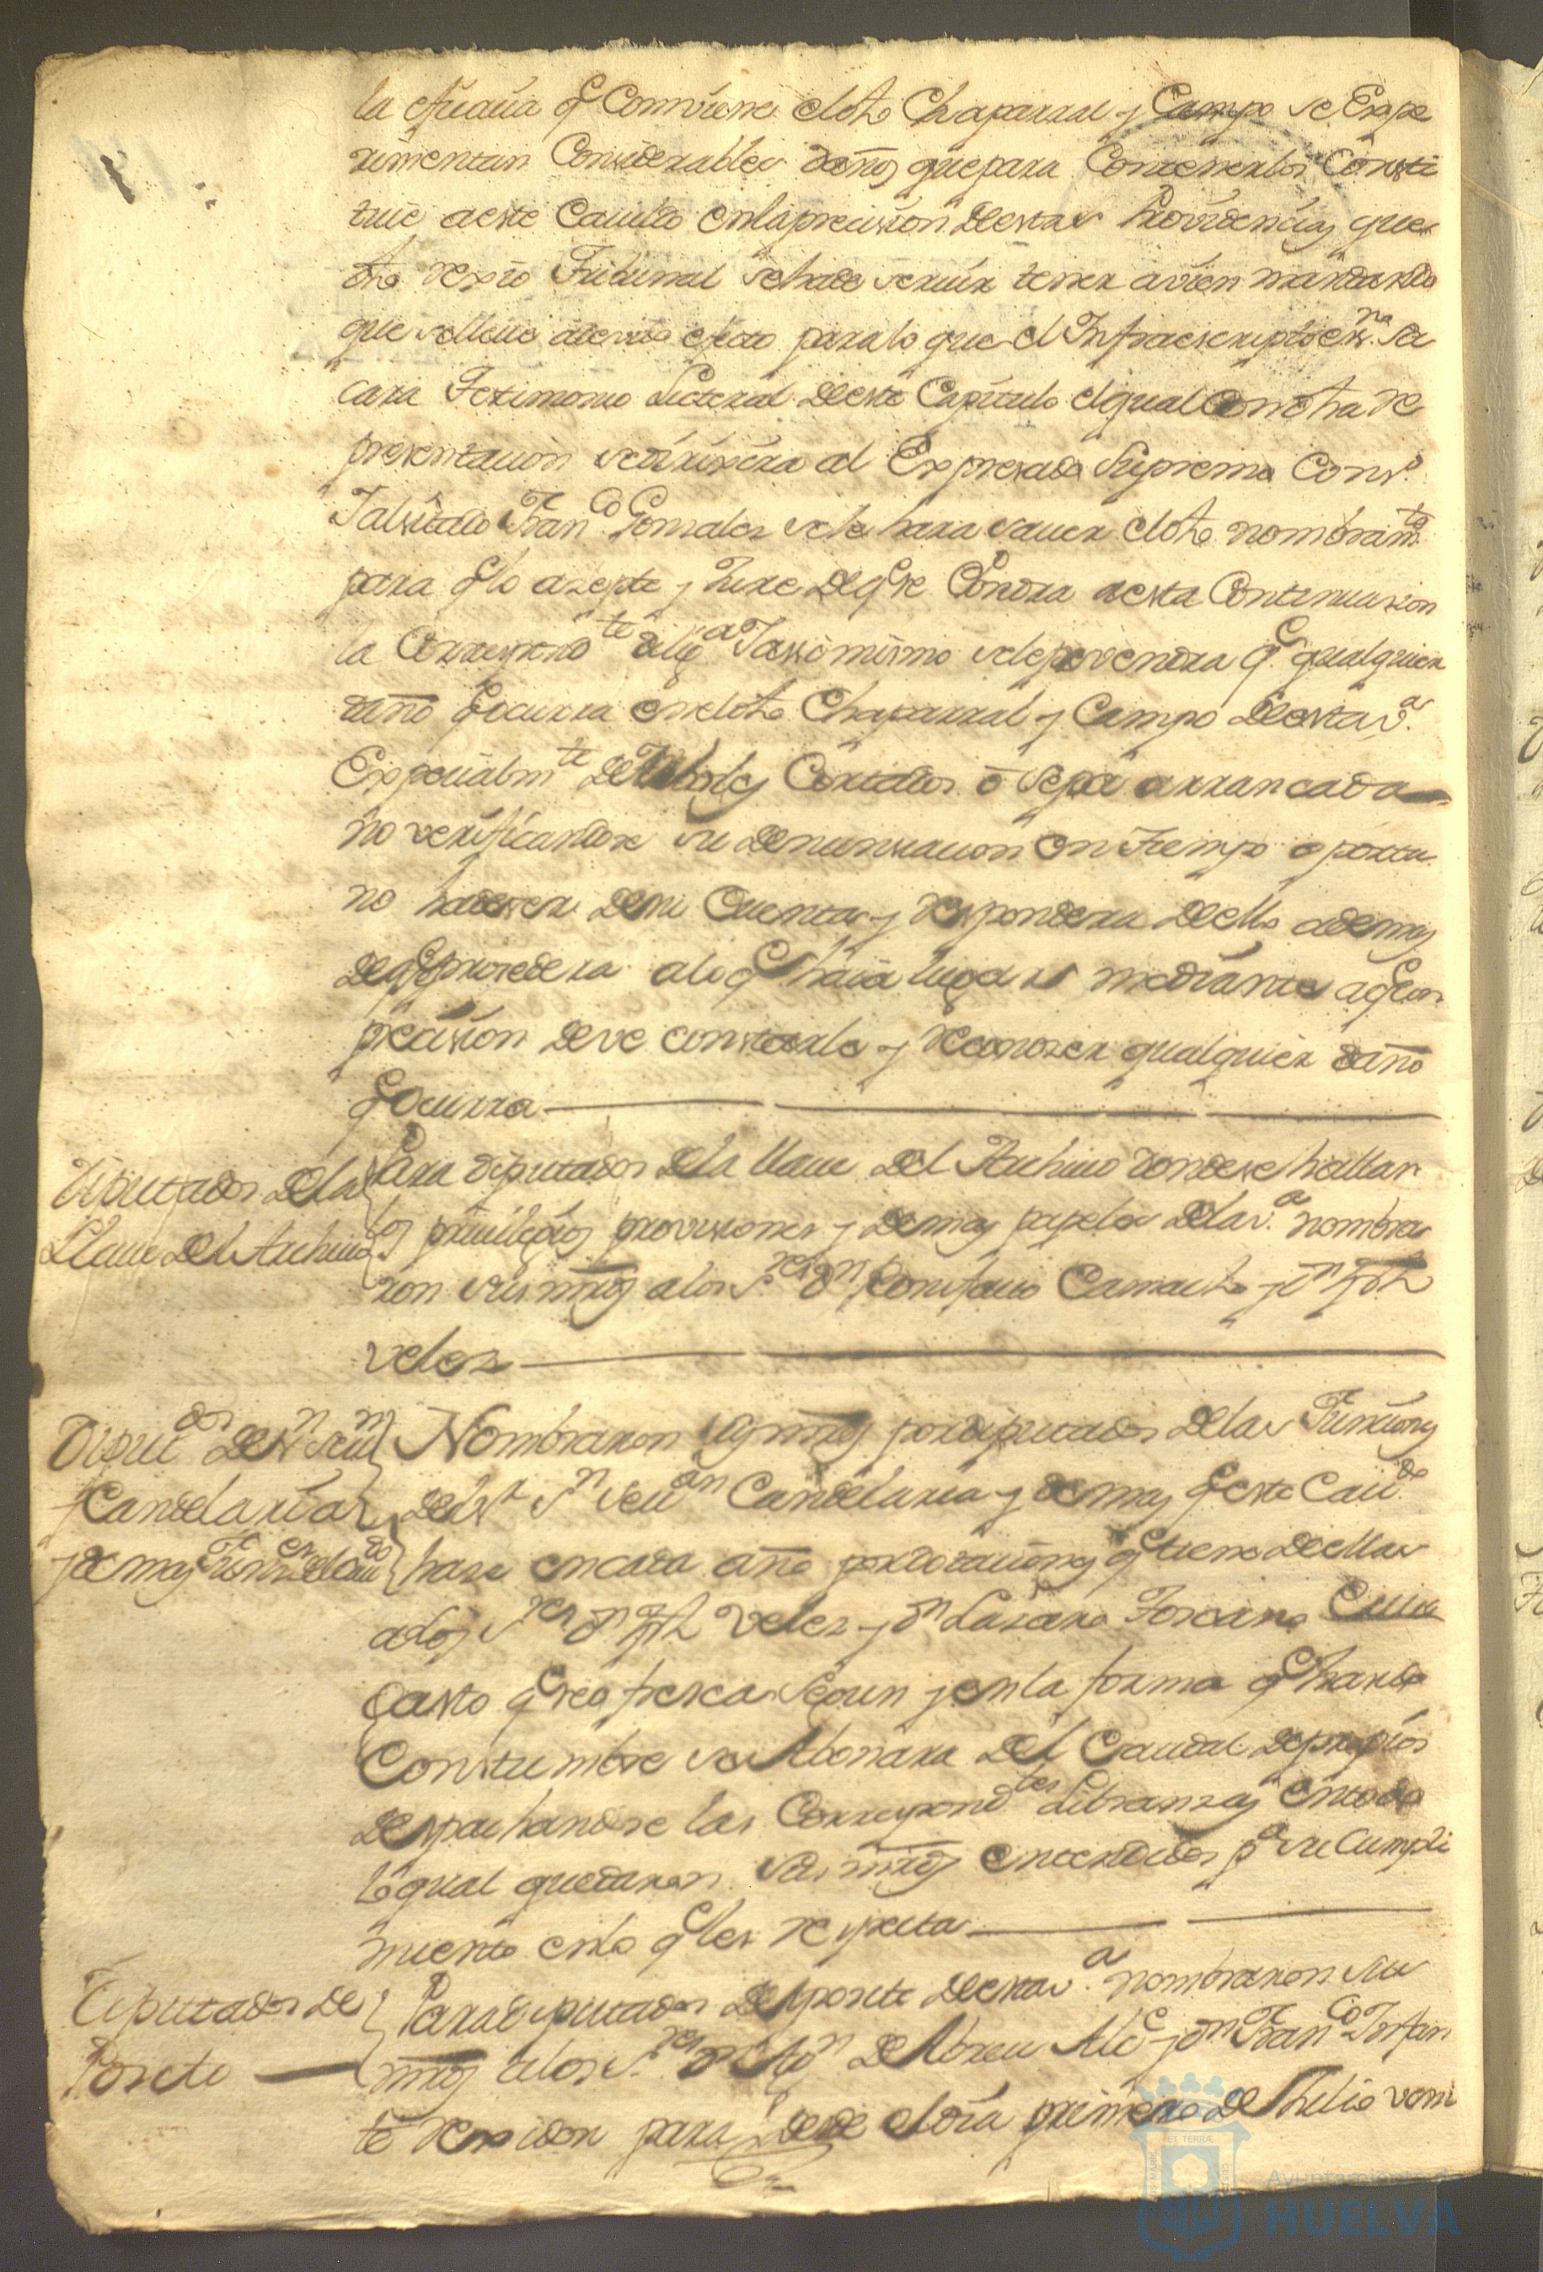 la eficacia q.e Combiene el dho Chaparral y Campo se Expe
rimentan Considerables daños que para Contenerlos Consti
tuie a este Cauildo en la precision de estas Providencias que
dho Rexio Tribunal se ha de seruir tener a vien mandando
que se lleue a devido efecto para lo que el Infraescripto ess.no Sa
cara Testimonio Literal de este Capitulo el qual Con dha Re
presentacion se dirixira al Expresado Supremo Cons.o
Y al citado Fran.co Gonzales se le hara sauer el dho nombram.to
para q.e lo azepte y Jure de q.e se Pondra a esta Continuazion
la Correspond.te dilig.a Y assi mismo se le prevendra q.e qualquier
daño q.e ocurra en el dho Chaparral y Campo de esta v.a
Expecialm.te de Arboles Cortados o Sepa arrancada
no verificandose su denunsiacion en tiempo oportu
no ha de ser de su Cuenta y Respondera de ello ademas
de q.e se prosedera a lo q.e haia lugar mediante a q.e con
precision deve constarle y Reconoser qualquier daño
q.e ocurra
Diputados de la
Llaue del Archiuo
Para diputados de la llaue del Archiuo donde se hallan
los priuilegios provisiones y demas papeles de la v.a nombra
ron sus mrds a los S.res D.n Bonifacio Camacho y D.n Jph
velez
Diput.dos de S.n Seu.n
Candelaria
y demas Funz.es del Cau.do
Nombraron sus mrds por diputados de las Funciones
de S.r S.n Seu.an Candelaria y demas q.e este Cau.do
haze en cada año por dotaciones q.e tiene de ellas
a los S.res D.n Jph Velez y D.n Lazaro Toscano Cuio
Gasto q.e se ofresca Segun y en la forma q.e ha sido
Constumbre se Abonara del Caudal de propios
despachandose las Correspond.tes Libranzas en todo
lo qual quedaron sus mrds entendidos p.a su Cumpli
miento en lo q.e les Respecta
Diputados de
Posito
Para diputados del posito de esta v.a nombraron sus
mrds a los S.res D.n Ag.n de Abreu Alc.e y D.n Fran.co Infan
te Rexidor para desde el dia primero de Julio veni
Ayuntamiento de
HUELVA